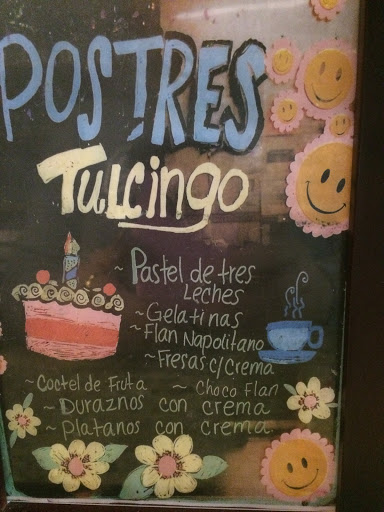 POSTRES
Tulcingo
~ Pastel de tres
Leches
~ Gelatinas
~ Flan Napolitano
~ Fresas c/Crema
~ Coctel de Fruta ~ Choco Flan
~ Duraznos con crema
~ Platanos con crema